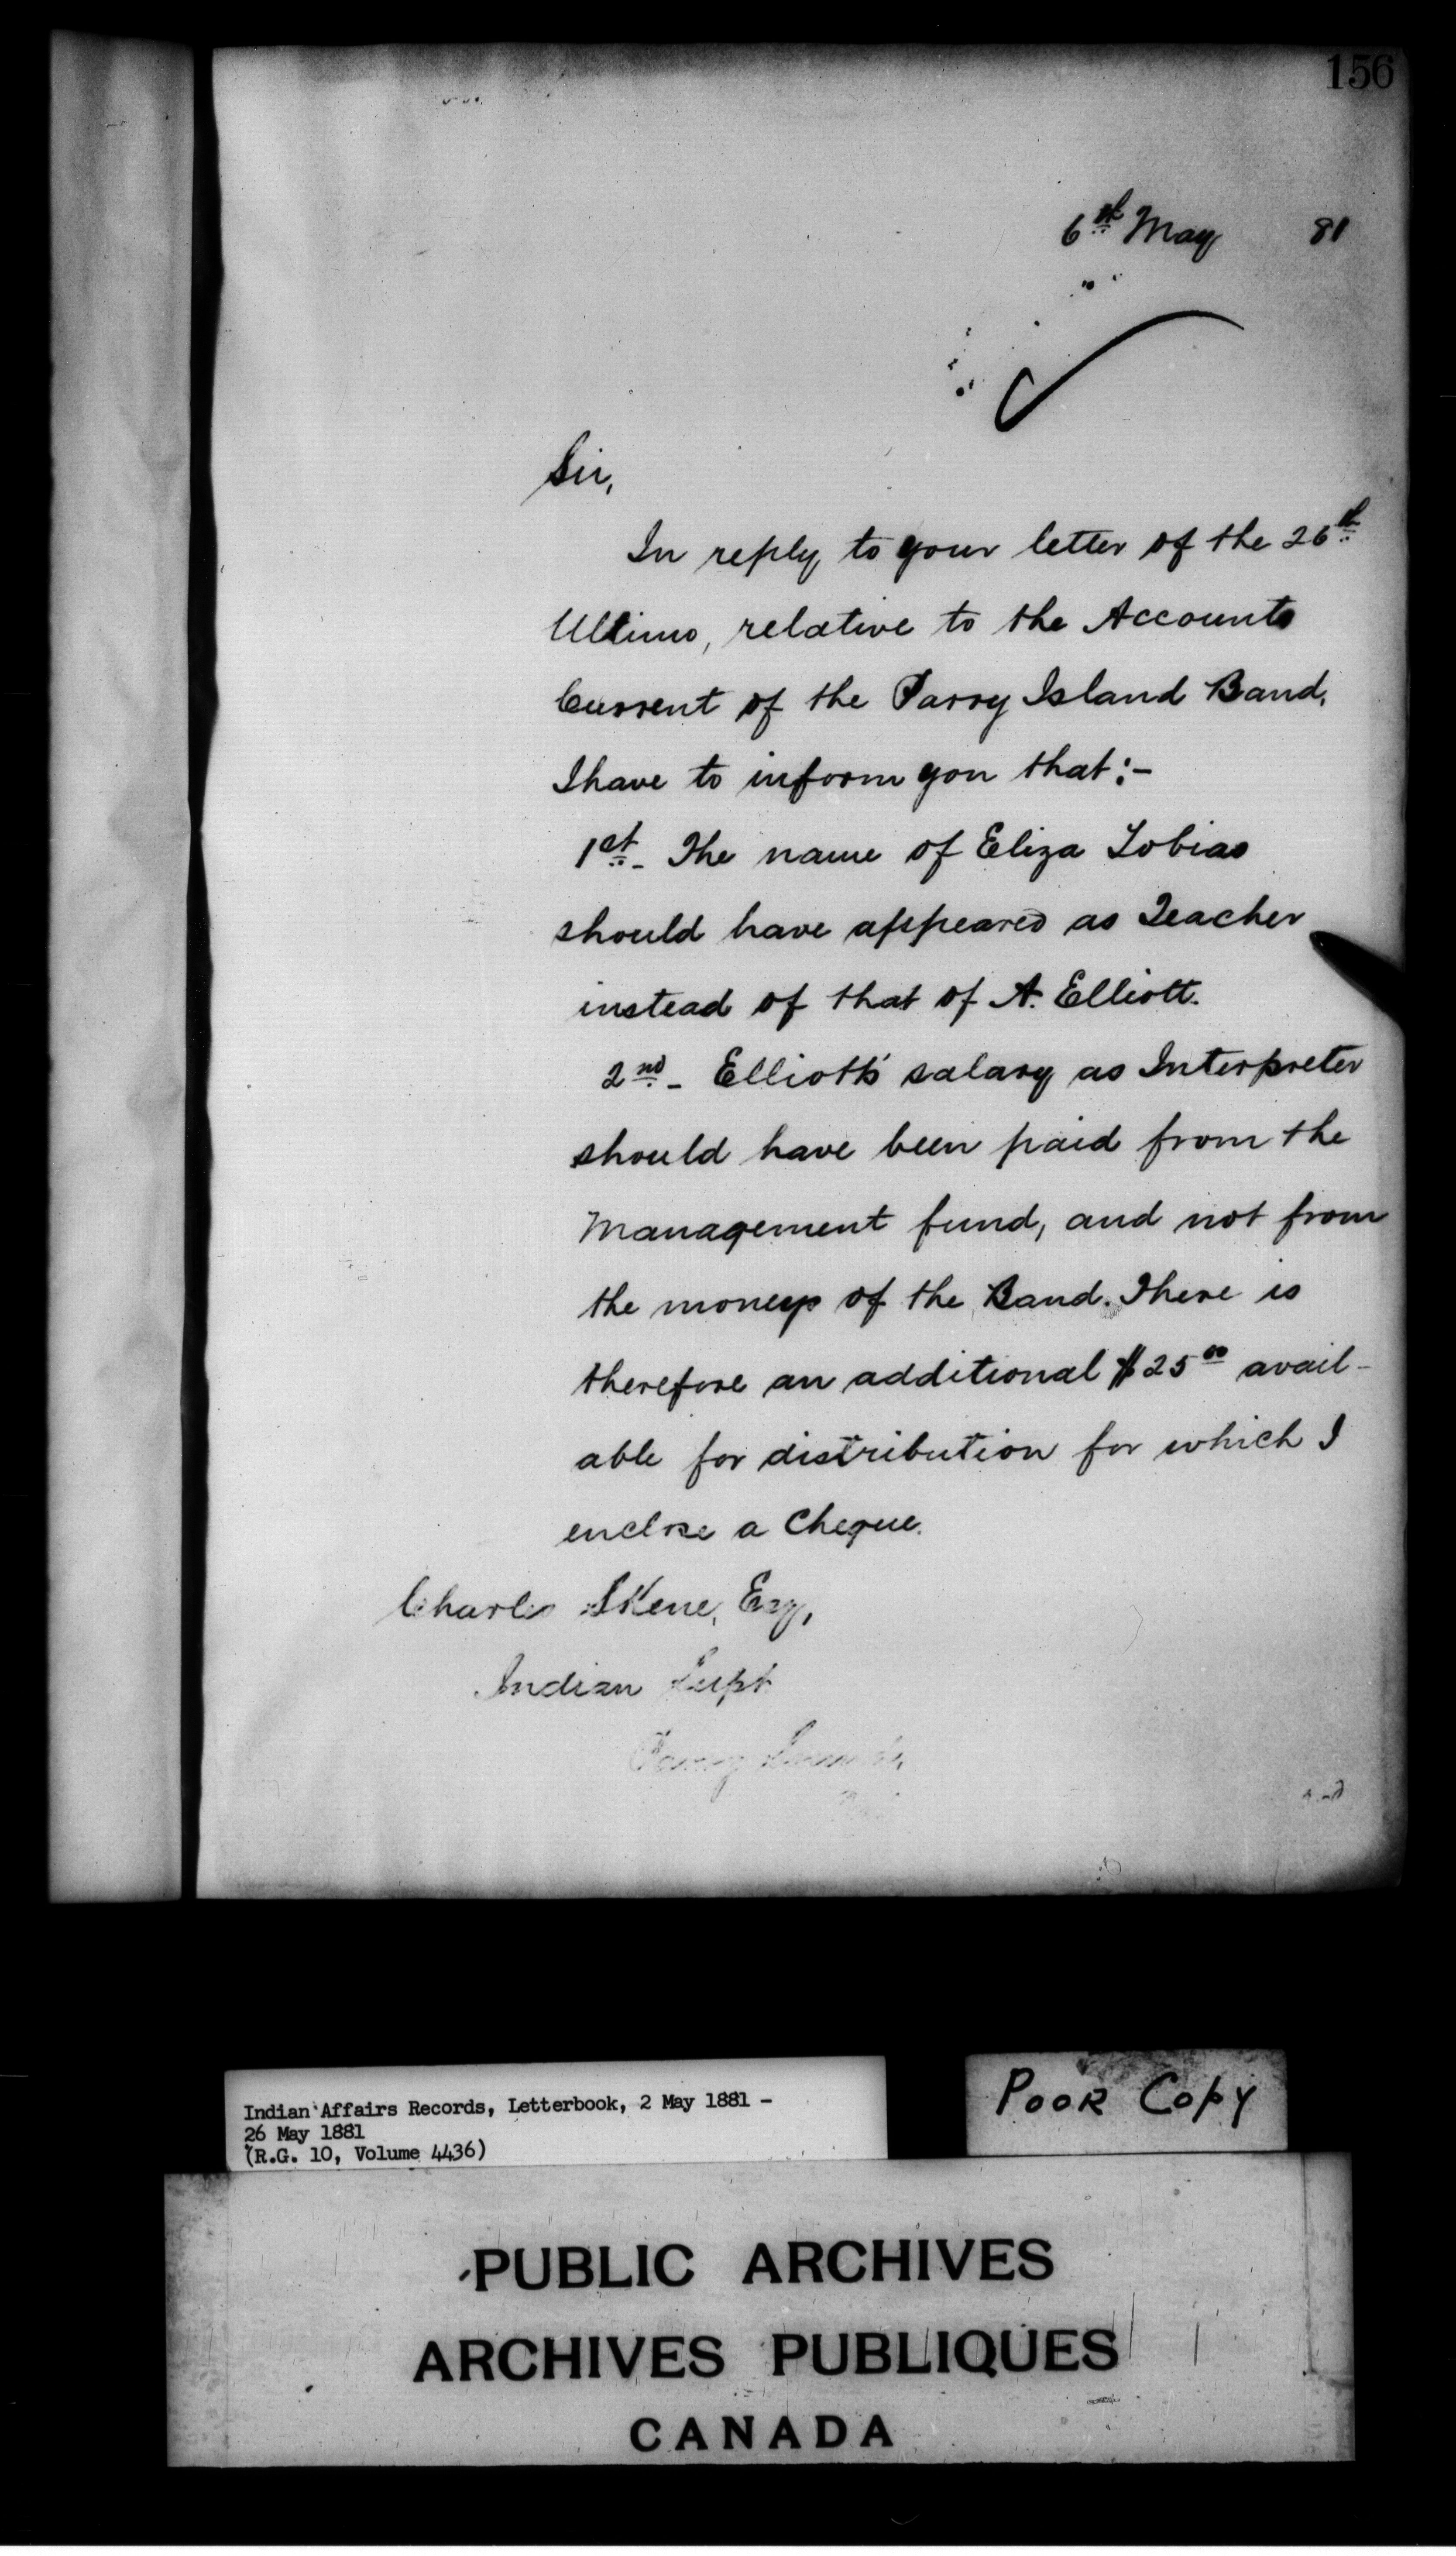 156
6th May 81
Sir,
In reply to your letter of the 26th
Ultimo, relative to the Accounts
Current of the Parry Island Band,
I have to inform you that:-
1st - The name of Eliza Tobias
should have appeared as Teacher
instead of that of A. Elliott.
2nd - Elliott's salary as Interpreter
should have been paid from the
Management fund, and not from
the moneys of the Band. There is
therefore an additional $25 00 avail-
able for distribution for which I
enclose a Cheque.
Charles Skene, Esq,
Indian Supt
Parry Sound,
Indian Affairs Records, Letterbook, 2 May 1881 -
26 May 1881
(R.G. 10, Volume 4436)
POOR COPY
PUBLIC ARCHIVES
ARCHIVES PUBLIQUES
CANADA